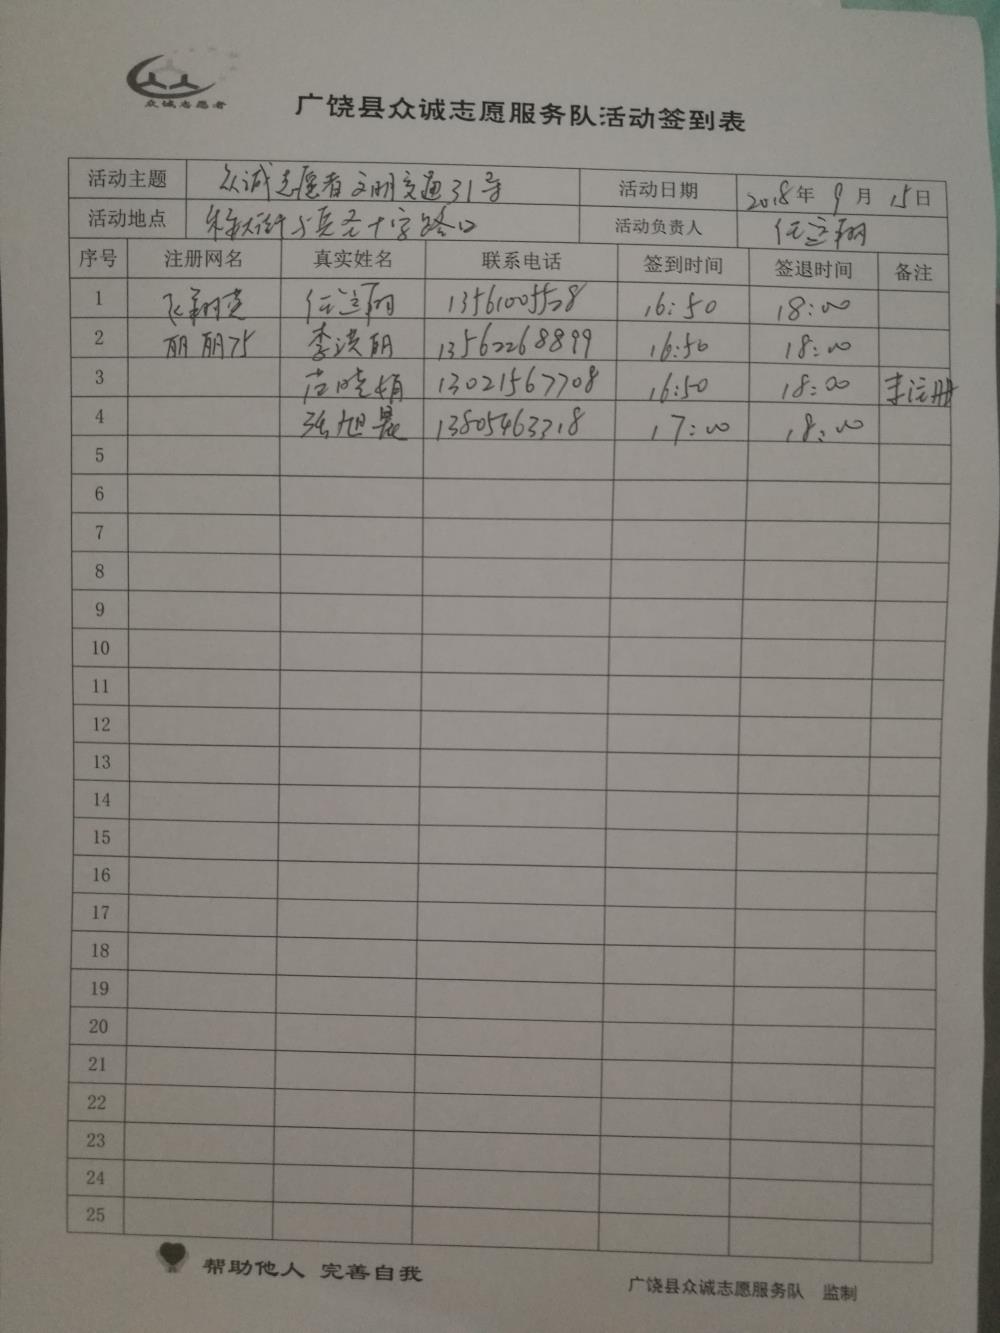 众诚志愿者
广饶县众诚志愿服务队活动签到表
活动主题 众诚志愿者文明交通31号 活动日期 2018年9月15日
活动地点 大街与兵圣十字路口 活动负责人 任立翔
序号 注册网名 真实姓名 联系电话 签到时间 签退时间 备注
1 飞翔 任立翔 13561005528 16:50 18:00
2 丽丽75 李洪丽 13562268899 16:50 18:00
3 晓娟 13021567708 16:50 18:00 未注册
4 张旭晨 13805463318 17:00 18:00
5
6
7
8
9
10
11
12
13
14
15
16
17
18
19
20
21
22
23
24
25
帮助他人 完善自我
广饶县众诚志愿服务队 监制